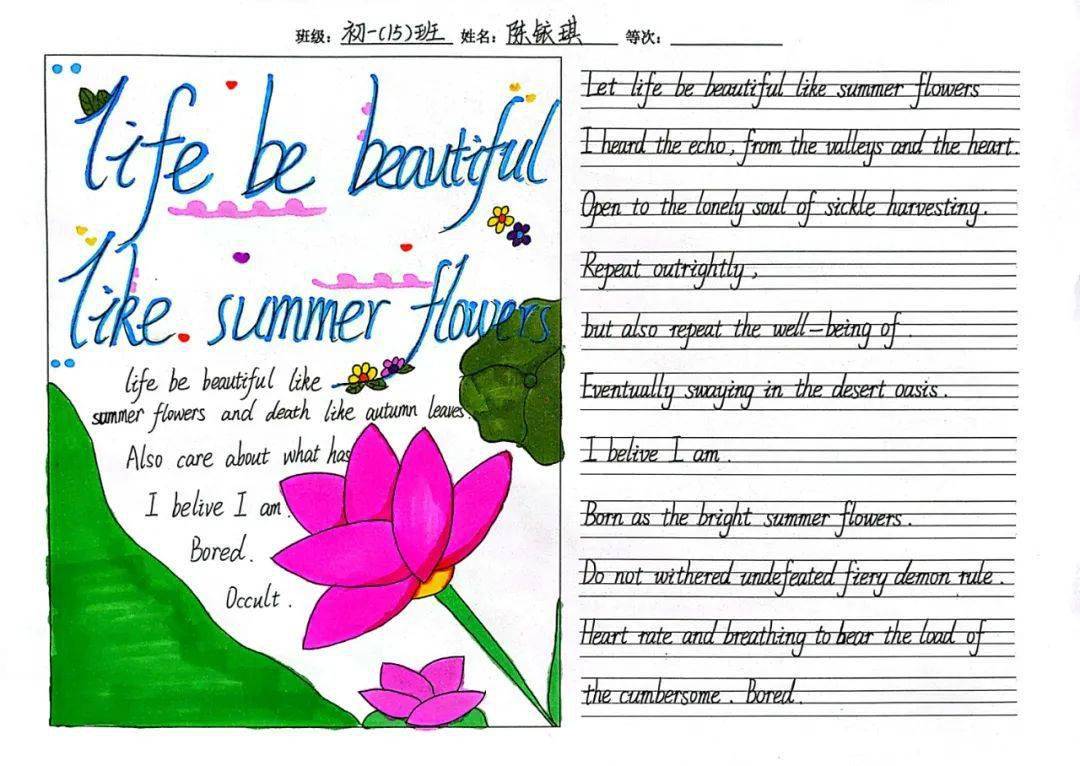 班级：初一（15）班 姓名：陈铱琪 等次：
life be beautiful
like summer flowers
life be beautiful like
summer flowers and death like autumn leaves.
Also care about what has
I belive I am.
Bored.
Occult.
Let life be beautiful like summer flowers
I heard the echo, from the valleys and the heart.
Open to the lonely soul of sickle harvesting.
Repeat outrightly,
but also repeat the well-being of.
Eventually swaying in the desert oasis.
I belive I am.
Born as the bright summer flowers.
Do not withered undefeated fiery demon rule.
Heart rate and breathing to bear the load of
the cumbersome. Bored.